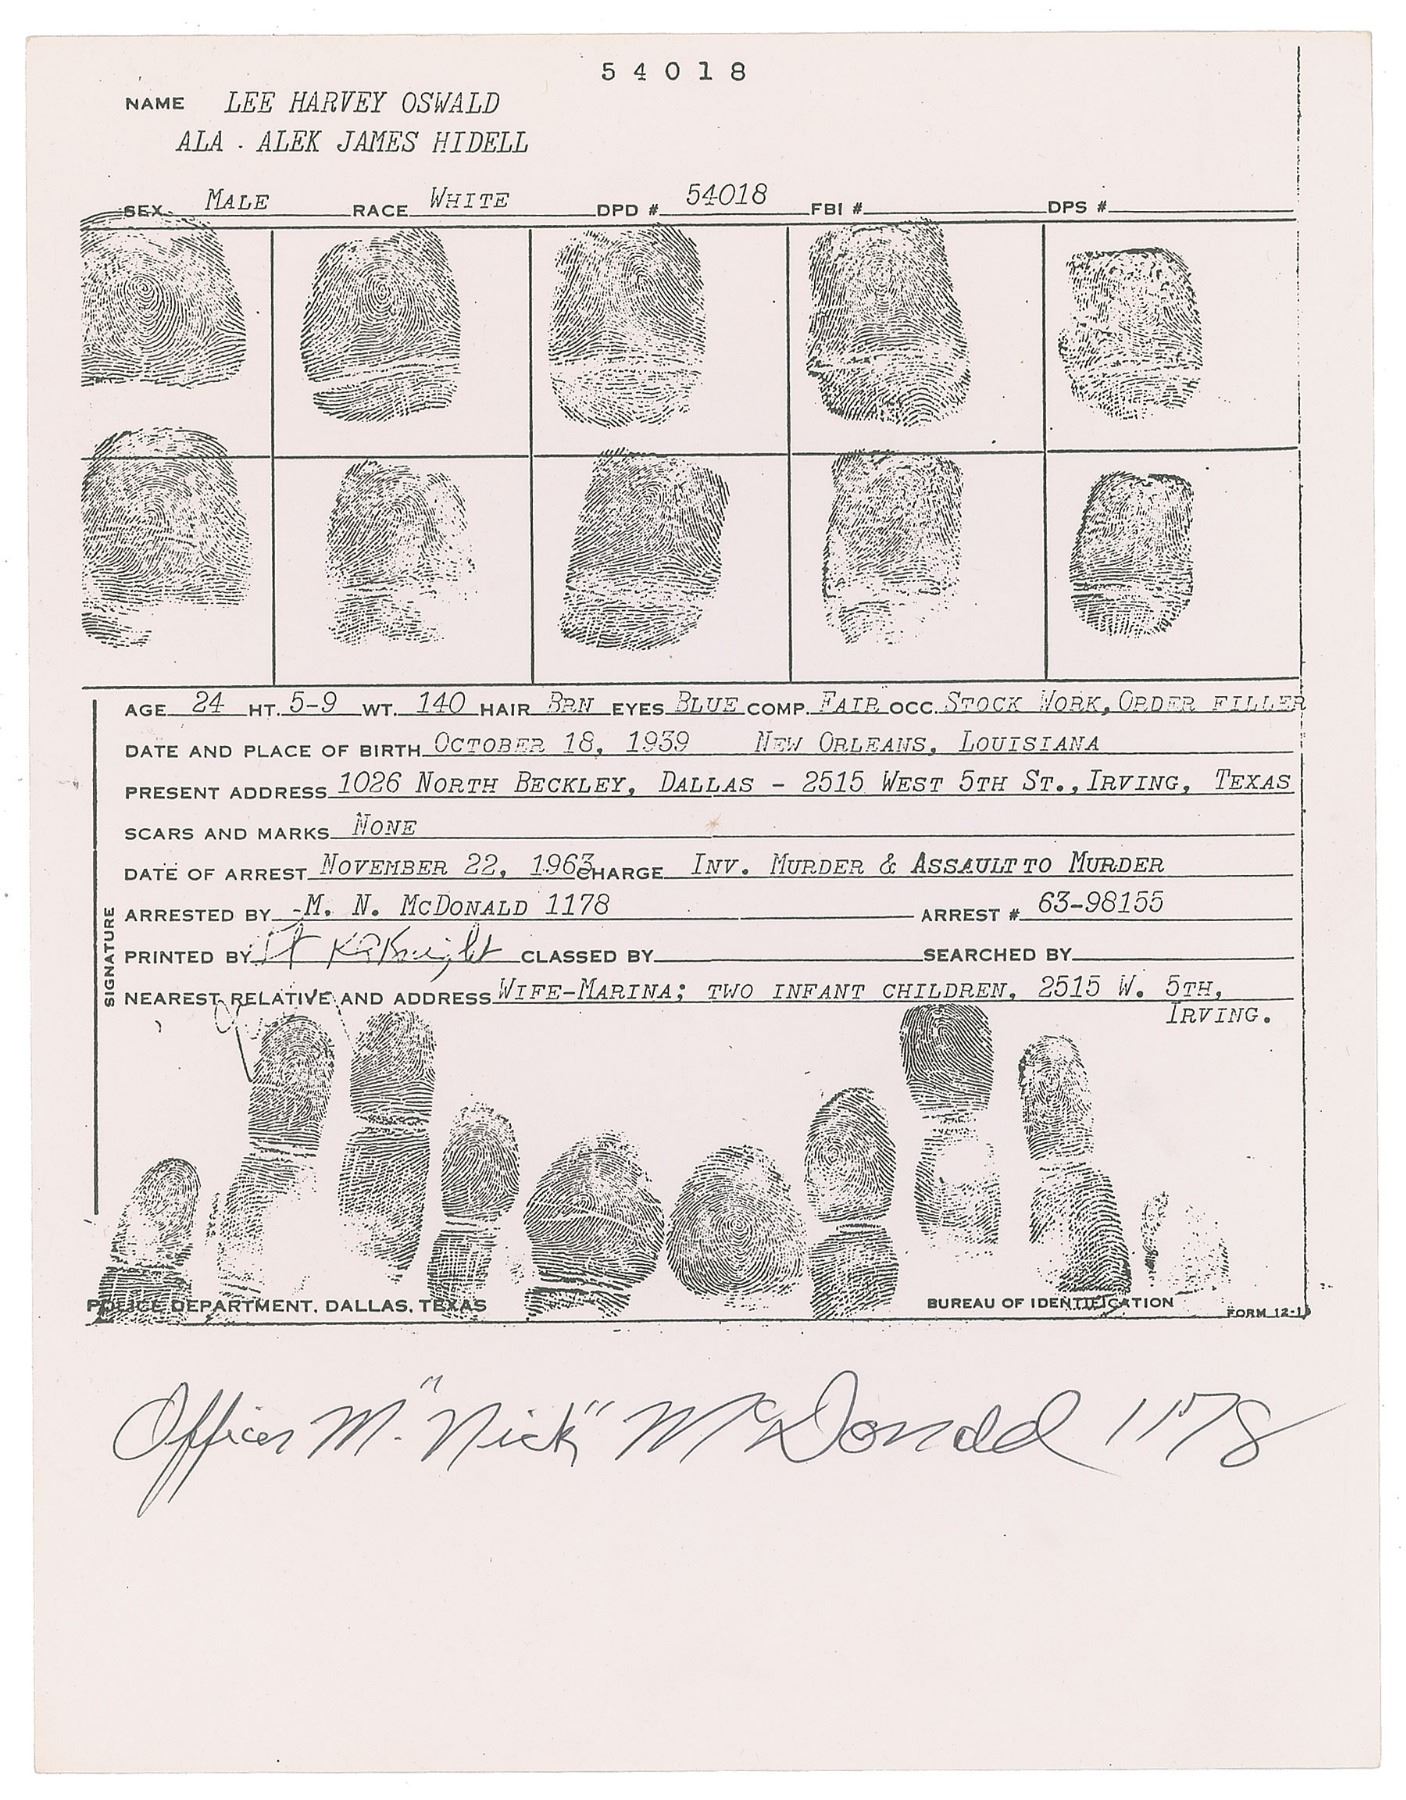 54018
NAME LEE HARVEY OSWALD
ALA . ALEK JAMES HIDELL
SEX MALE RACE WHITE DPD # 54018 FBI # DPS #
AGE 24 HT. 5-9 WT. 140 HAIR BRN EYES BLUE COMP. FAIR OCC. STOCK WORK, ORDER FILLER
DATE AND PLACE OF BIRTH OCTOBER 18, 1939 NEW ORLEANS, LOUISIANA
PRESENT ADDRESS 1026 NORTH BECKLEY, DALLAS - 2515 WEST 5TH ST., IRVING, TEXAS
SCARS AND MARKS NONE
DATE OF ARREST NOVEMBER 22, 1963 CHARGE INV. MURDER & ASSAULT TO MURDER
ARRESTED BY M. N. MCDONALD 1178 ARREST # 63-98155
PRINTED BY CLASSED BY SEARCHED BY
SIGNATURE
NEAREST RELATIVE AND ADDRESS WIFE-MARINA; TWO INFANT CHILDREN, 2515 W. 5TH,
IRVING.
POLICE DEPARTMENT, DALLAS, TEXAS BUREAU OF IDENTIFICATION
FORM
Officer M. "Nick" McDonald 1178